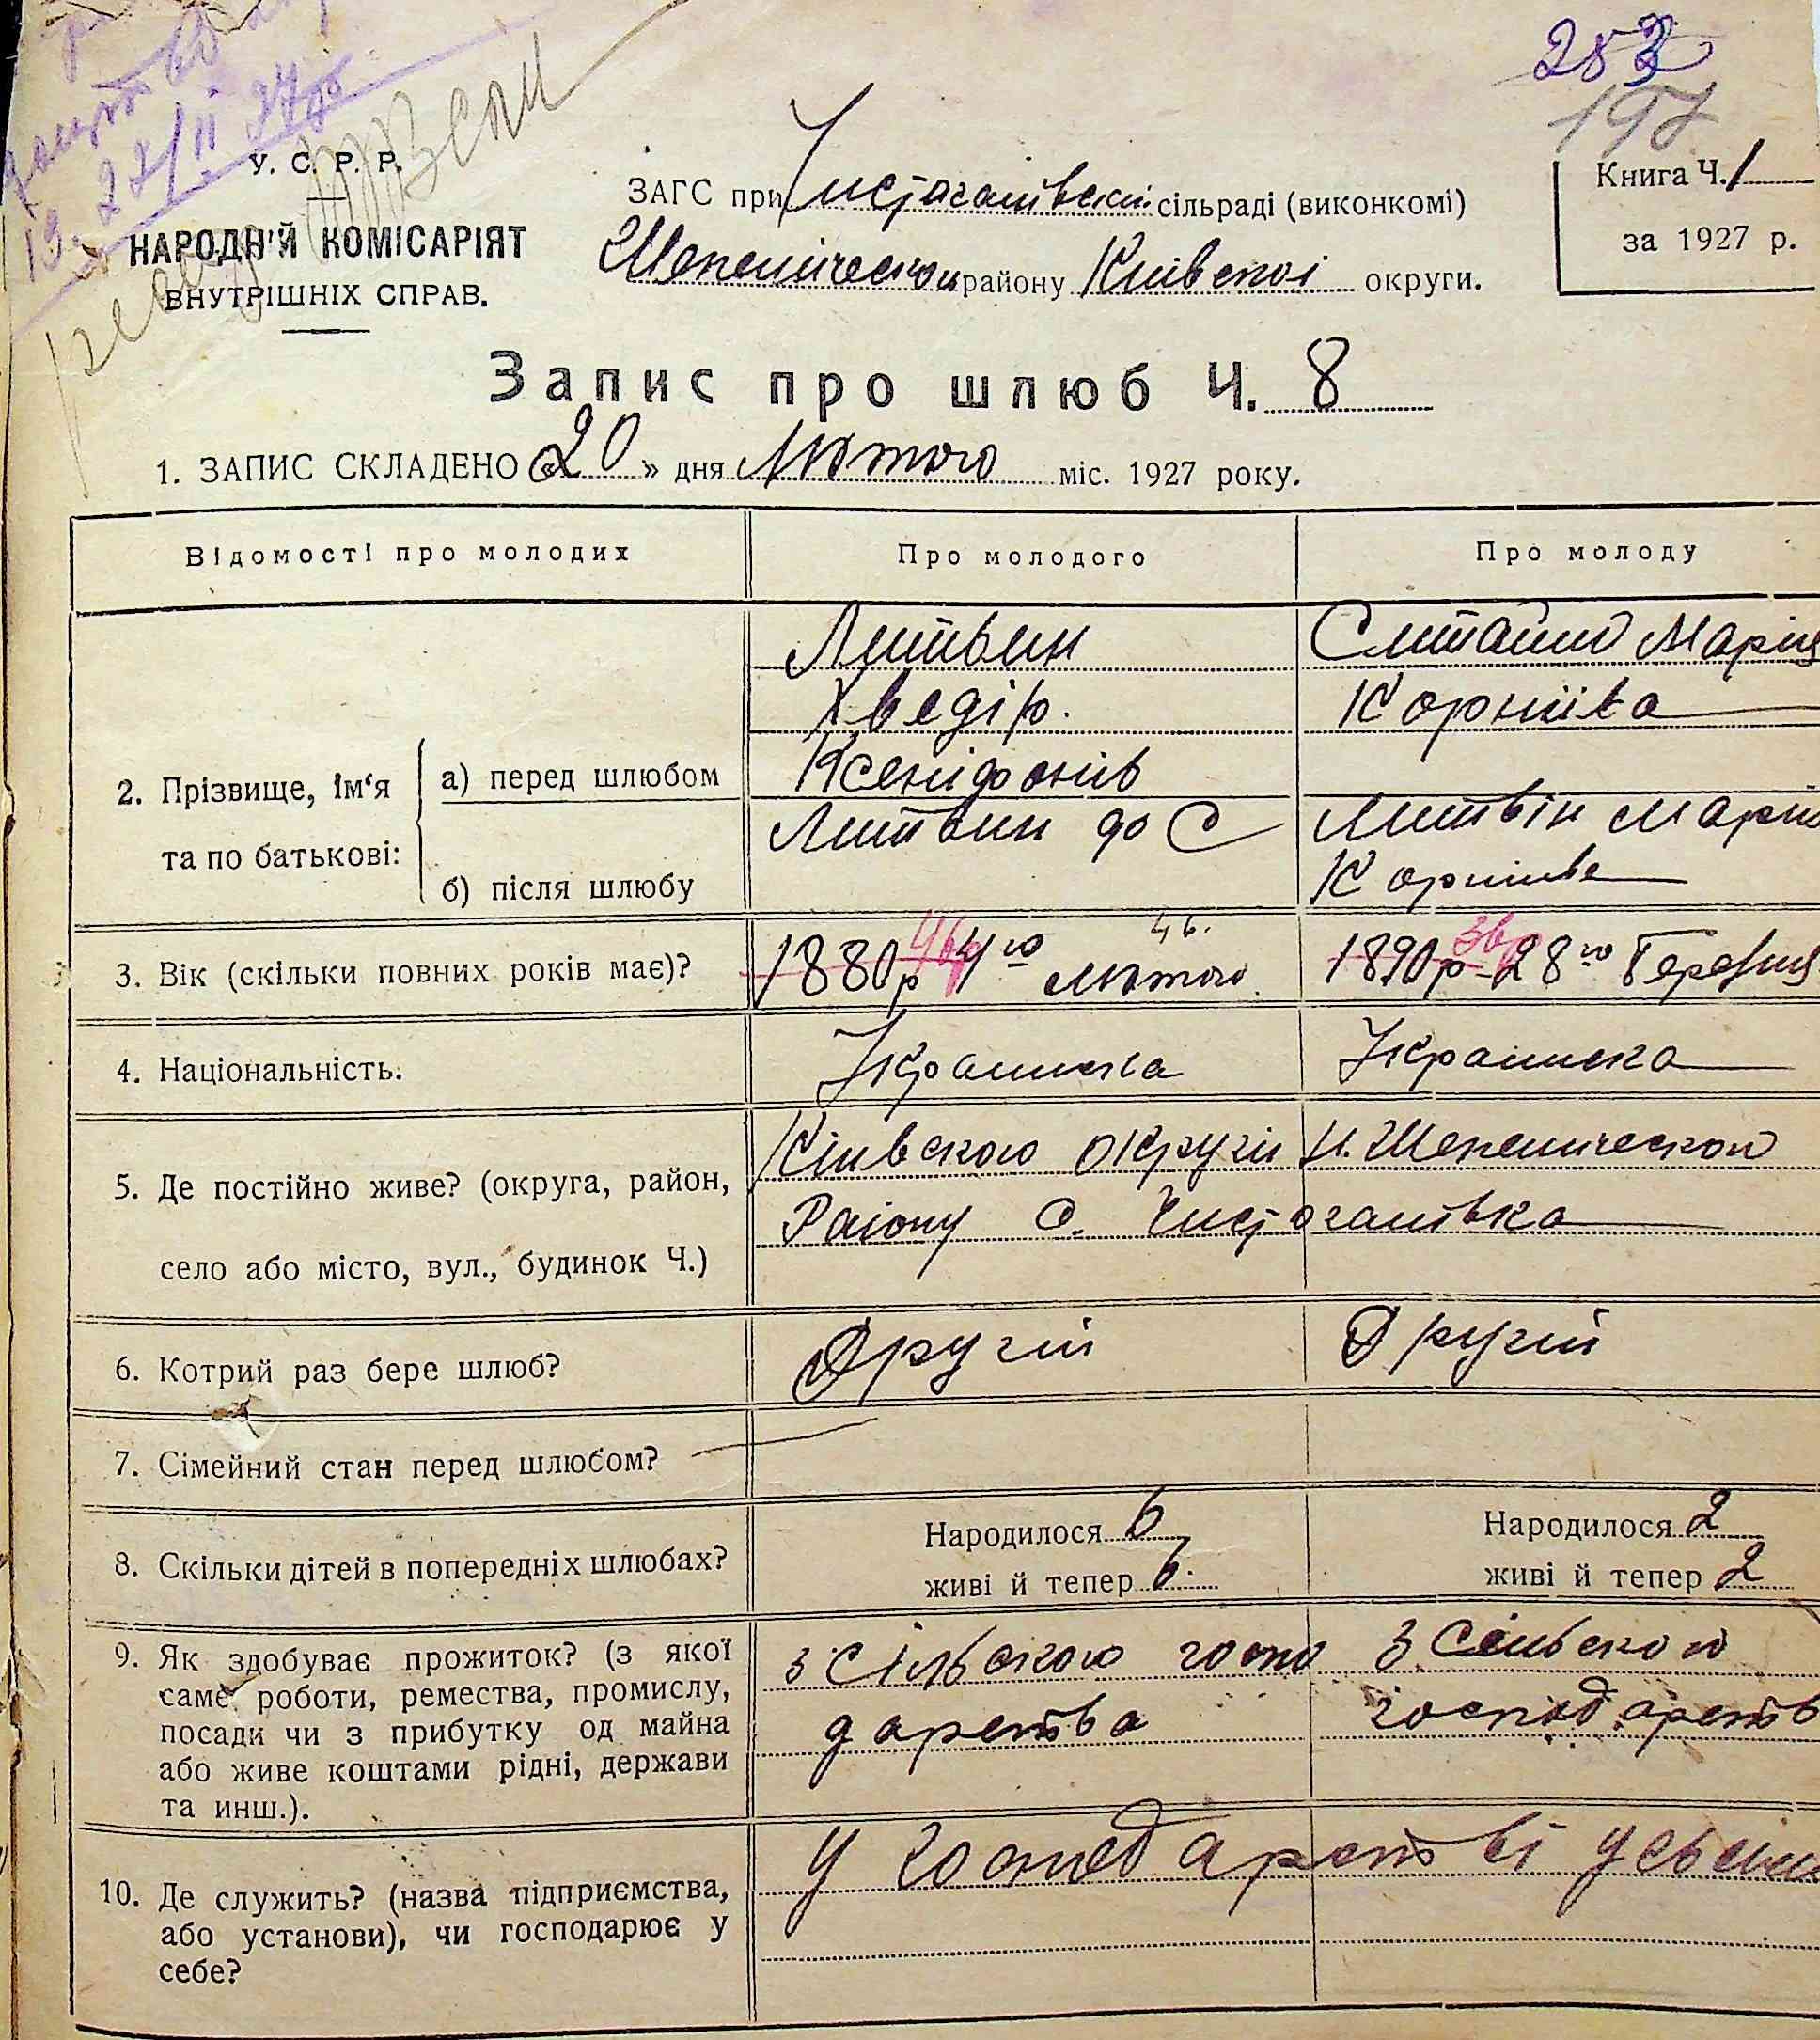 283
197
У. С. Р. Р.
НАРОДН'Й КОМІСАРІЯТ
ВНУТРІШНІХ СПРАВ.
ЗАГС при Чистогалівскій сільраді (виконкомі)
Шепелическои району Киівскоі округи.
Книга Ч. 1
за 1927 р.
Запис про шлюб Ч. 8
1. ЗАПИС СКЛАДЕНО «20» дня Лютого міс. 1927 року.
Відомості про молодих
Про молодого
Про молоду
2. Прізвище, ім‘я та по батькові:
а) перед шлюбом
Литвин
Хведір.
Ксеніфонів
Марія
Корнііва
б) після шлюбу
Литвин до С
Литвін Марія
Корніива
3. Вік (скільки повних років має)?
1880р 46р 4го Лютого 46.
1890р 36р 28го Березня
4. Національність.
Украинска
Украинска
5. Де постійно живе? (округа, район,
село або місто, вул., будинок Ч.)
Кіивского округи Н. Шепелическои
Раіону С. Чистогалівка
6. Котрий раз бере шлюб?
Другій
Другій
7. Сімейний стан перед шлюбом?
8. Скільки дітей в попередніх шлюбах?
Народилося 6
живі й тепер 6.
Народилося 2
живі й тепер 2
9. Як здобуває прожиток? (з якої
саме роботи, ремества, промислу,
посади чи з прибутку од майна
або живе коштами рідні, держави
та инш.).
з Сільского госпо
дарства
З Сельского
господарств
10. Де служить? (назва підприємства,
або установи), чи господарює у
себе?
У господарстві